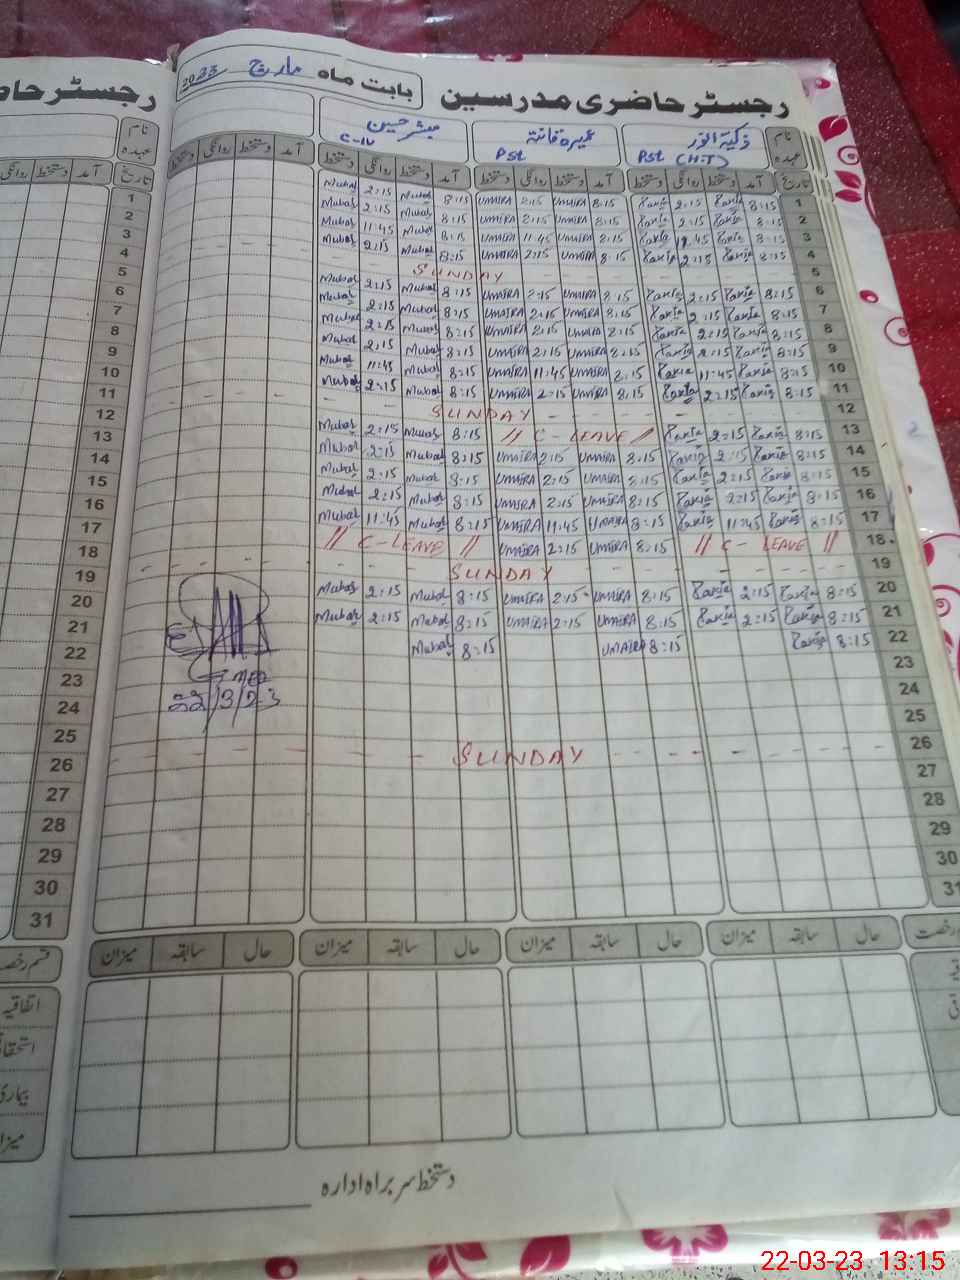 رجسٹر حاضری مدرسین بابت ماہ مارچ 2023
نام ذکیۃ انور عمیرہ فائقہ مبشر حسین
عہدہ Pst (H.T) Pst C-IV
تاریخ آمد دستخط روانگی دستخط آمد دستخط روانگی دستخط آمد دستخط روانگی دستخط آمد دستخط روانگی دستخط
1 8:15 Zakia 2:15 Zakia 8:15 UMAIRA 2:15 UMAIRA 8:15 Mubas 2:15 Mubas
2 8:15 Zakia 2:15 Zakia 8:15 UMAIRA 2:15 UMAIRA 8:15 Mubas 2:15 Mubas
3 8:15 Zakia 12.45 Zakia 8:15 UMAIRA 11:45 UMAIRA 8:15 Mubas 11:45 Mubas
4 8:15 Zakia 2:15 Zakia 8:15 UMAIRA 2:15 UMAIRA 8:15 Mubas 2:15 Mubas
5 SUNDAY
6 8:15 Zakia 2:15 Zakia 8:15 UMAIRA 2:15 UMAIRA 8:15 Mubas 2:15 Mubas
7 8:15 Zakia 2:15 Zakia 8:15 UMAIRA 2:15 UMAIRA 8:15 Mubas 2:15 Mubas
8 8:15 Zakia 2:15 Zakia 8:15 UMAIRA 2:15 UMAIRA 8:15 Mubas 2:15 Mubas
9 8:15 Zakia 2:15 Zakia 8:15 UMAIRA 2:15 UMAIRA 8:15 Mubas 2:15 Mubas
10 8:15 Zakia 11:45 Zakia 8:15 UMAIRA 11:45 UMAIRA 8:15 Mubas 11:45 Mubas
11 8:15 Zakia 2:15 Zakia 8:15 UMAIRA 2:15 UMAIRA 8:15 Mubas 2:15 Mubas
12 SUNDAY
13 8:15 Zakia 2:15 Zakia // C - LEAVE // 8:15 Mubas 2:15 Mubas
14 8:15 Zakia 2:15 Zakia 8:15 UMAIRA 2:15 UMAIRA 8:15 Mubas 2:15 Mubas
15 8:15 Zakia 2:15 Zakia 8:15 UMAIRA 2:15 UMAIRA 8:15 Mubas 2:15 Mubas
16 8:15 Zakia 2:15 Zakia 8:15 UMAIRA 2:15 UMAIRA 8:15 Mubas 2:15 Mubas
17 8:15 Zakia 11:45 Zakia 8:15 UMAIRA 11:45 UMAIRA 8:15 Mubas 11:45 Mubas
18 // C - LEAVE // 8:15 UMAIRA 2:15 UMAIRA // C - LEAVE //
19 SUNDAY
20 8:15 Zakia 2:15 Zakia 8:15 UMAIRA 2:15 UMAIRA 8:15 Mubas 2:15 Mubas
21 8:15 Zakia 2:15 Zakia 8:15 UMAIRA 2:15 UMAIRA 8:15 Mubas 2:15 Mubas
22 8:15 Zakia 8:15 UMAIRA 8:15 Mubas
23
24
22/3/23
25
26 SUNDAY
27
28
29
30
31
رخصت حال سابقہ میزان حال سابقہ میزان حال سابقہ میزان حال سابقہ میزان
دستخط سربراہ ادارہ
رجسٹر حا
نام
عہدہ
تاریخ آمد دستخط روانگی
1
2
3
4
5
6
7
8
9
10
11
12
13
14
15
16
17
18
19
20
21
22
23
24
25
26
27
28
29
30
31
قسم رخص
اتفاقیہ
استحقا
بیماری
میزا
22-03-23 13:15